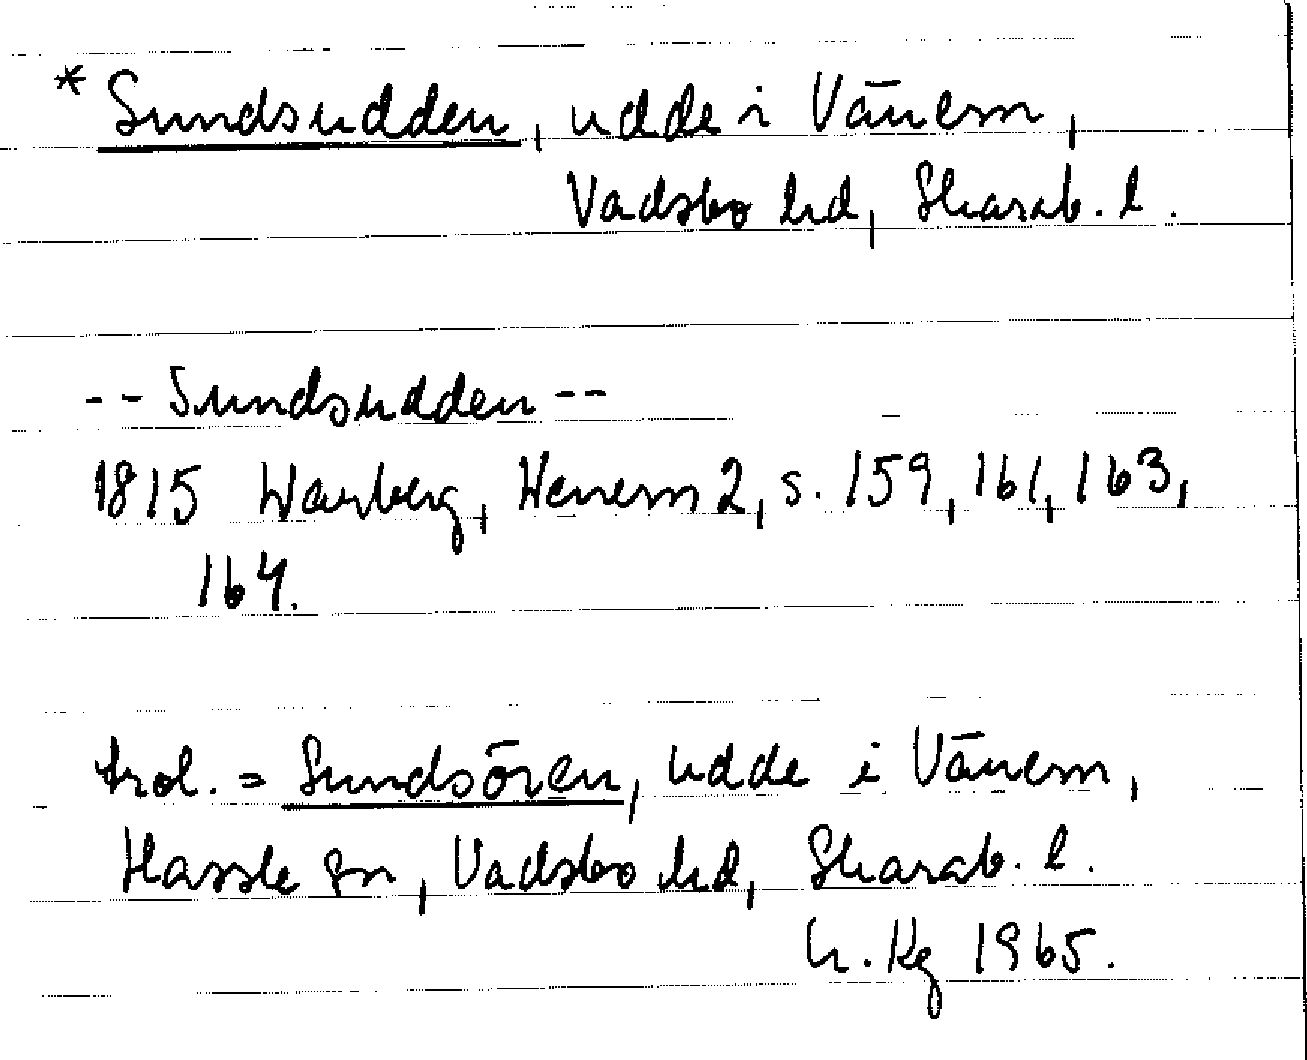 * Sundsudden, udde i Vänern,
Vadsbo hd, Skarab. l.
-- Sundsudden --
1815 Warberg, Wenern 2, s. 159, 161, 163,
164.
trol. = Sundsören, udde i Vänern,
Hassle sn, Vadsbo hd, Skarab. l.
1965.